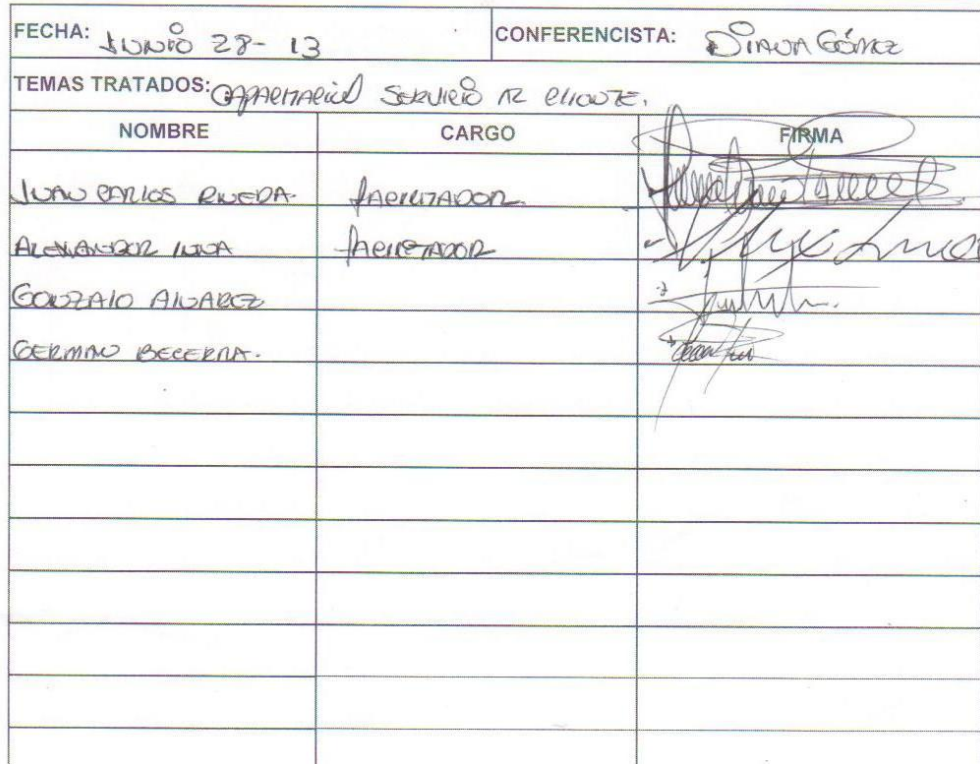 FECHA: JUNIO 28-13 CONFERENCISTA: DIANA GÓMEZ
TEMAS TRATADOS: CAPACITACIÓN SERVICIO AL CLIENTE.
NOMBRE CARGO FIRMA
JUAN CARLOS RIVERA. FACILITADOR.
ALEXANDER FACILITADOR
GONZALO ALVAREZ
GERMAN BECERRA.